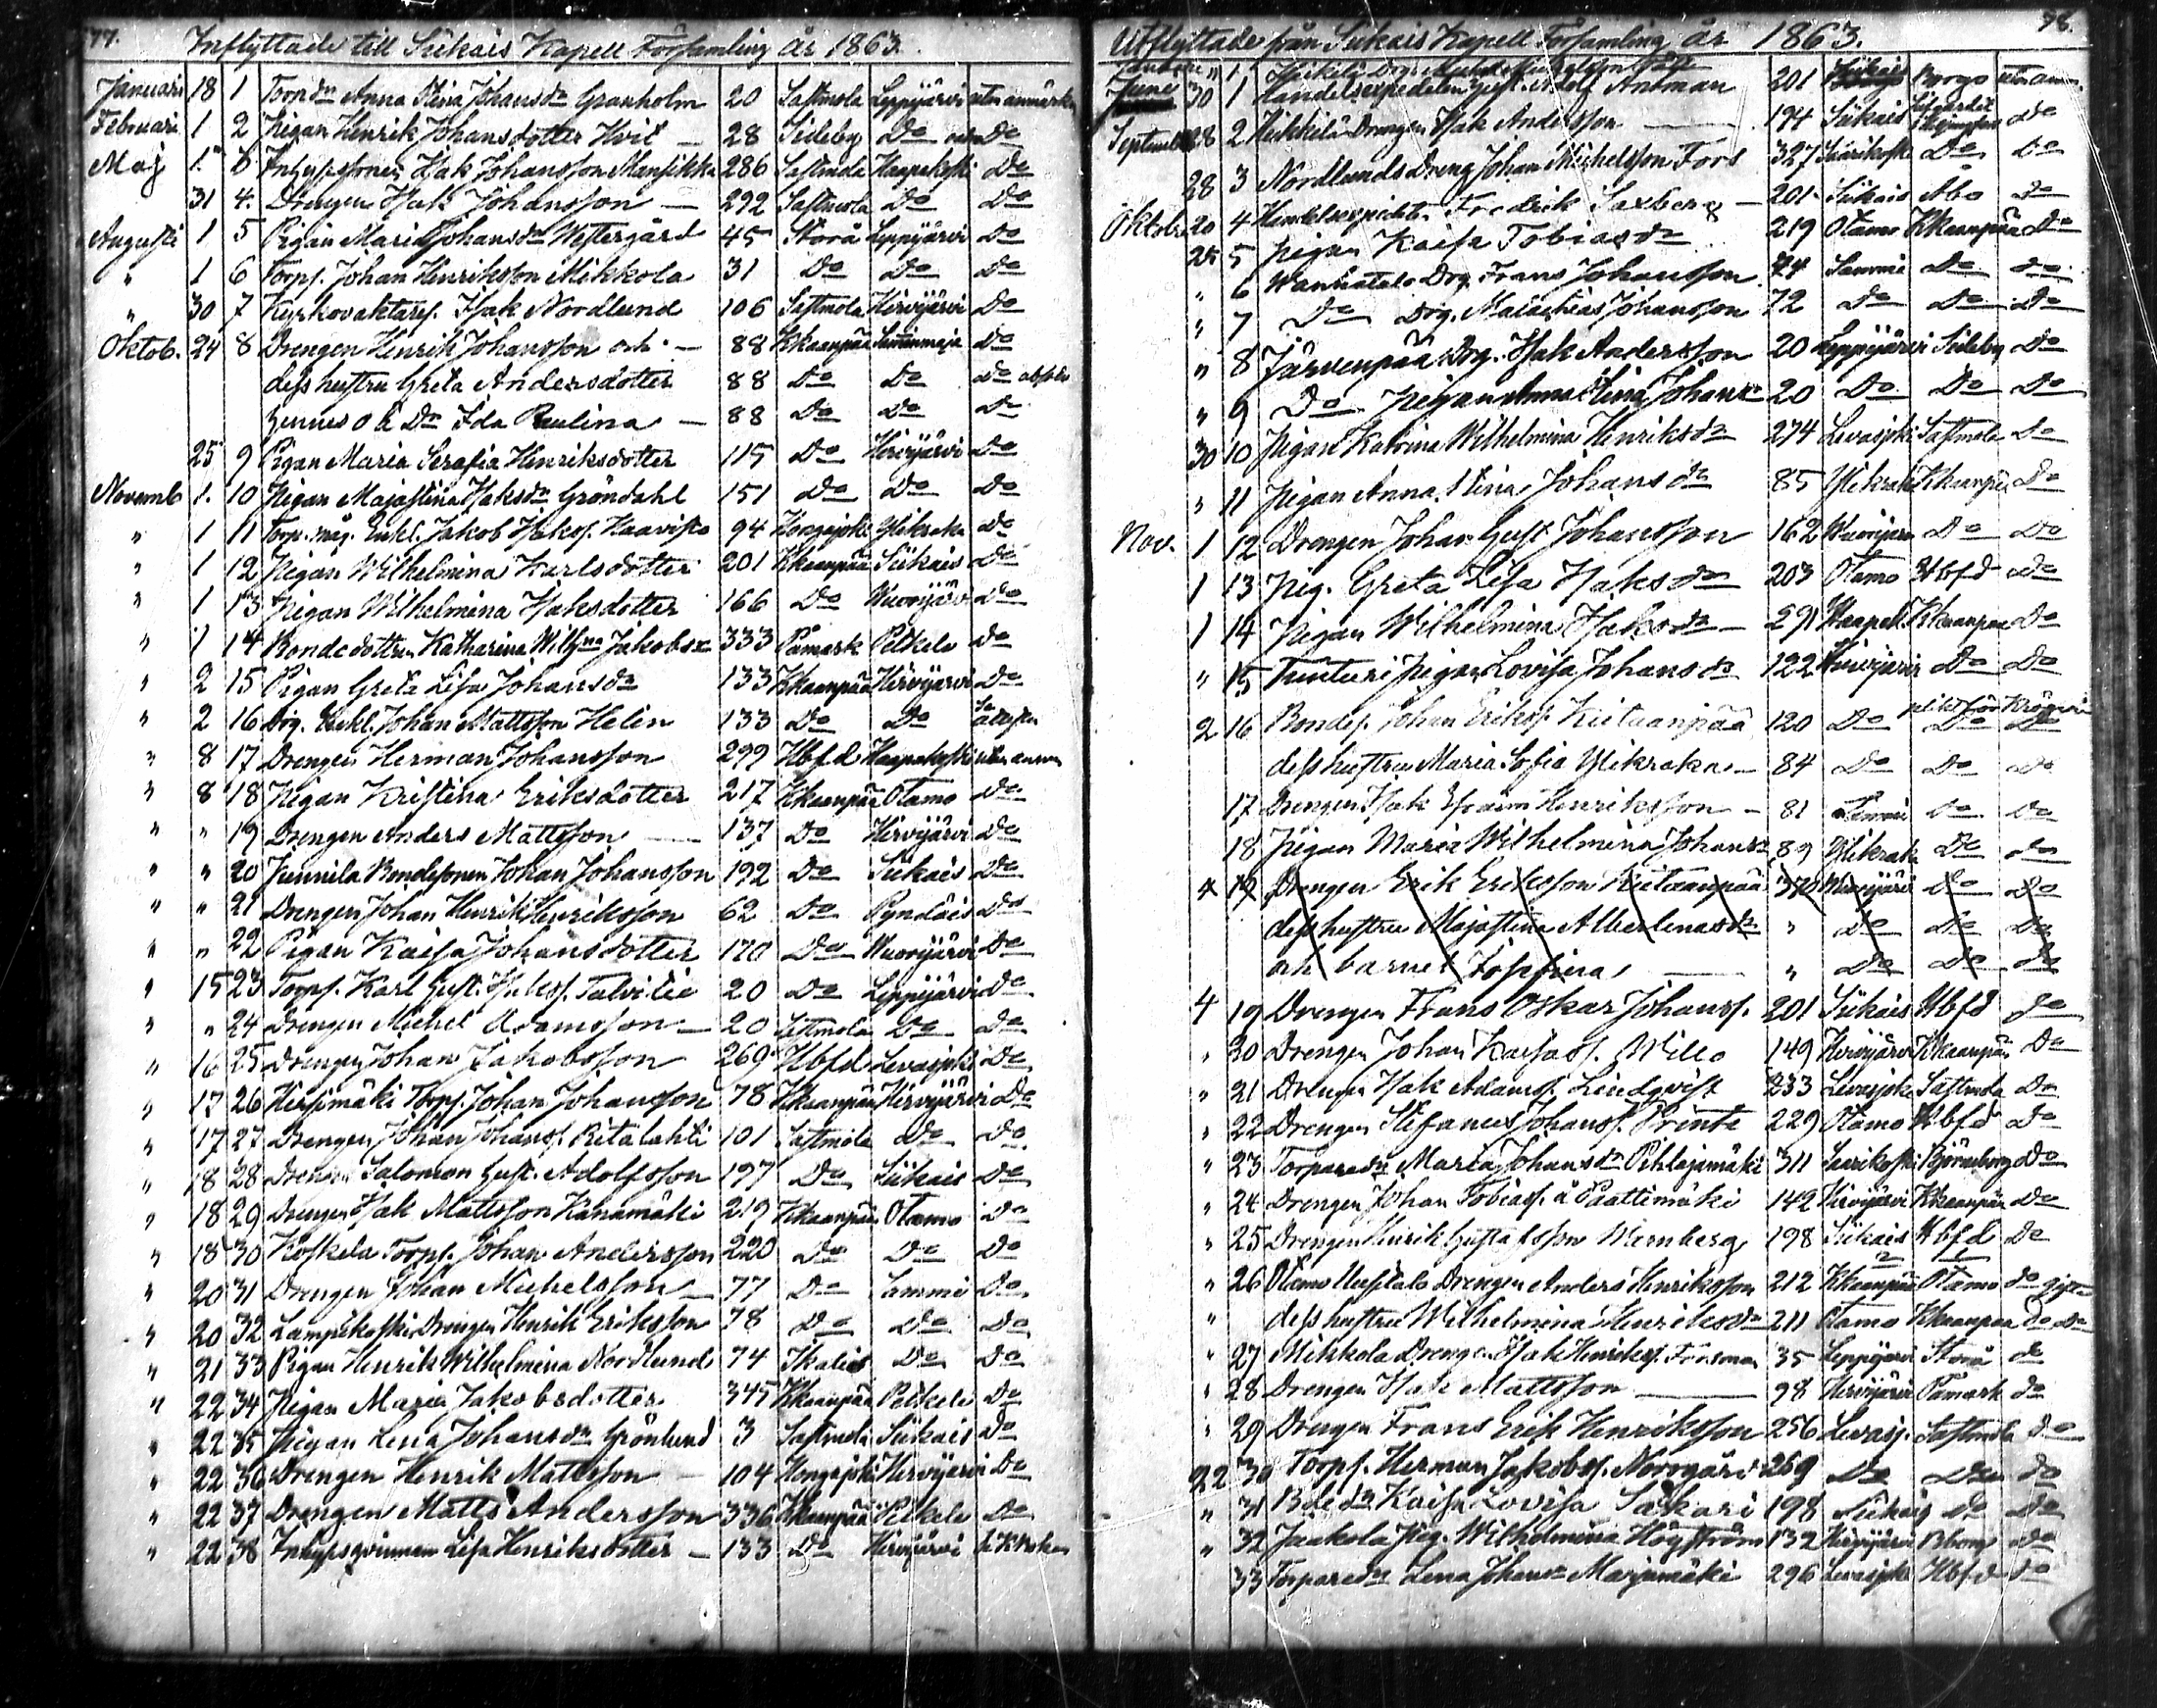 77.
Inflyttade till Siikais Kapell Församling år 1863.
Januari 18 1 Torpdn Anna Stina Johansdn Granholm 20 Sastmola Leppijärvi utan anmärkn
Februari 1 2 Pigan Henrik Johansdotter Hvit — 28 Sideby Do Do
Maj 1 3 Inhyssonen Isak Johansson Mansikka 286 Sastmola Haapakoski Do
31 4. Drengen Isak Johansson — 292 Sastmola Do Do
Augusti 1 5 Pigan Maria Johansdn Westergård 45 Storå Leppijärvi Do
" 1 6 Torps. Johan Henriksson Mikkola 31 Do Do Do
" 30 7 Kyrkovaktares. Isak Nordlund 106 Sastmola Hirvijärvi Do
Oktob. 24 8 Drengen Henrik Johansson och — 88 Kkaanpää Do
dess hustru Greta Andersdotter 88 Do Do Do
hennes o ä Dr Ida Paulina — 88 Do Do Do
25 9 Pigan Maria Serafia Henriksdotter 115 Do Hirvijärvi Do
Novemb 1. 10 Pigan Majastina Isaksdn Gröndahl 151 Do Do Do
" 1 11 Torp. måg. Enkl. Jakob Isakss. Haavisto 94 Hongojoki Ylikraka Do
" 1 12 Pigan Wilhelmina Karlsdotter 201 Kkaanpää Siikais Do
" 1 13 Pigan Wilhelmina Isaksdotter 166 Do Wuorijärvi Do
" 1 14 Bondedottren Katharina Wilhna Jakobsdn 333 Påmark Petkele Do
" 2 15 Pigan Greta Lisa Johansdn 133 Kkaanpää Hirvijärvi Do
" 2 16 Drg. Enkl. Johan Mattsson Helin 133 Do Do
" 8 17 Drengen Herman Johansson 299 Hbfd Haapakoski utan anm
" 8 18 Pigan Kristina Eriksdotter 217 Kkaanpää Otamo Do
" " 19 Drengen Anders Mattsson — 137 Do Hirvijärvi Do
" " 20 Junnila Bondesonen Johan Johansson 192 Do Siikais Do
" " 21 Drengen Johan Henrik Henriksson 62 Do Pyndäis Do
" " 22 Pigan Kaisa Johansdotter 170 Do Wuorijärvi Do
" 15 23 Torps. Karl Gust. Isakss. Talvitie 20 Do Leppijärvi Do
" " 24 Drengen Michel Adamsson — 20 Sastmola Do Do
" 16 25 Drengen Johan Jakobsson 269 Hbfd Levasjoki Do
" 17 26 Hirsimäki Torps. Johan Johansson 78 Kkaanpää Hirvijärvi Do
" 17 27 Drengen Johan Johanss. Ritalahti 101 Sastmola Do Do
" 18 28 Drengen Salomon Gust. Adolfsson 197 Do Siikais Do
" 18 29 Drengen Isak Mattsson Kanamäki 219 Kkaanpää Otamo Do
" 18 30 Koskela Torps. Johan Andersson 220 Do Do Do
" 20 31 Drengen Johan Michelsson — 77 Do Sammi Do
" 20 32 Lampikoski Drengen Henrik Eriksson 78 Do Do Do
" 21 33 Pigan Henrik Wilhelmina Nordlund 74 Ikalis Do Do
" 22 34 Pigan Maria Jakobsdotter 345 Kkaanpää Petkele Do
" 22 35 Pigan Lena Johansdn Grönlund 3 Sastmola Siikais Do
" 22 36 Drengen Henrik Mattsson — 104 Hongojoki Hirvijärvi Do
" 22 37 Drengen Matts Andersson 336 Kkaanpää Petkele Do
" 22 38 Inhysqvinnan Lisa Henriksdotter — 133 Do Hirvijärvi
78.
Utflyttade från Siikais Kapell Församling år 1863.
" 1 Heikkilä Drg.
Juni 30 1 Handelsexpediten Gust. Adolf Antman 201 Siikais Borgo utan anm
September 28 2 Heikkilä Drengen Isak Andersson — 194 Siikais Do
28 3 Nordlunds Dreng Johan Michelsson Fors 327 Saarikoski Do Do
Oktob. 20 4 Handelsexpedit. Fredrik Saxberg — 201 Siikais Åbo Do
25 5 Pigan Kaisa Tobiasdn 219 Otamo Kkaanpää Do
" 6 Wanhatalo Drg. Frans Johansson 74 Sammi Do Do
" 7 Do Drg. Malachias Johansson 72 Do Do Do
" 8 Järvenpää Drg. Isak Andersson 20 Leppijärvi Sideby Do
" 9 Do Pigan Anna Stina Johansdn 20 Do Do Do
30 10 Pigan Katrina Wilhelmina Henriksdn 274 Levasjoki Sastmola Do
" 11 Pigan Anna Stina Johansdn 85 Ylikraka Kkaanpää Do
Nov. 1 12 Drengen Johan Gust Johansson 162 Wuorijärvi Do Do
1 13 Pig. Greta Lisa Isaksdn 203 Otamo Hbfd Do
1 14 Pigan Wilhelmina Isaksdn — 291 Haapak. Kkaanpää Do
" 15 Tunturi Pigan Lovisa Johansdn 122 Hirvijärvi Do Do
2 16 Bondes. Johan Erikss. Kiettaanpää 120 Do Do Do
dess hustru Maria Sofia Ylikraka — 84 Do Do Do
17 Drengen Isak Efraim Henriksson — 81 Sammi Do Do
18 Pigan Maria Wilhelmina Johansdn 89 Ylikraka Do Do
4 19 Drengen Erik Eriksson Kiettaanpää 370 Wuorijärvi Do Do
dess hustru Majastina Albertinasdn " Do Do Do
och barnet Josefina — " Do Do Do
4 19 Drengen Frans Oskar Johanss. 201 Siikais Hbfd Do
" 20 Drengen Johan Kaisass. Wille 149 Hirvijärvi Kkaanpää Do
" 21 Drengen Isak Adamss. Lindqvist 233 Levasjoki Sastmola Do
" 22 Drengen Stefanus Johanss. Printe 229 Otamo Hbfd Do
" 23 Torparedn Maria Johansdn Pihlajamäki 311 Saarikoski Björneborg Do
" 24 Drengen Johan Tobiass. å Paattimäki 142 Hirvijärvi Kkaanpää Do
" 25 Drengen Henrik Gustafsson Wernberg 198 Siikais Hbfd Do
" 26 Otamo Uusitalo Drengen Anders Henriksson 212 Kkaanpää Otamo do
" dess hustru Wilhelmina Henriksdn 211 Otamo Kkaanpää Do Do
" 27 Mikkola Drengen Isak Henrikss. Forsman 35 Leppijärvi Storå do
" 28 Drengen Isak Mattsson — 98 Hirvijärvi Påmark do
" 29 Drengen Frans Erik Henriksson 256 Levasj. Sastmola Do
22 30 Torps. Herman Jakobss. Norrgård 269 Do Do Do
" 31 Bdedn Kaisa Lovisa Sakari 198 Siikais Do Do
" 32 Jaakola Pig. Wilhelmina Högström 132 Hirvijärvi Bborg Do
33 Torparedn Lena Johansdn Marjamäki 296 Levasjoki Hbfd Do